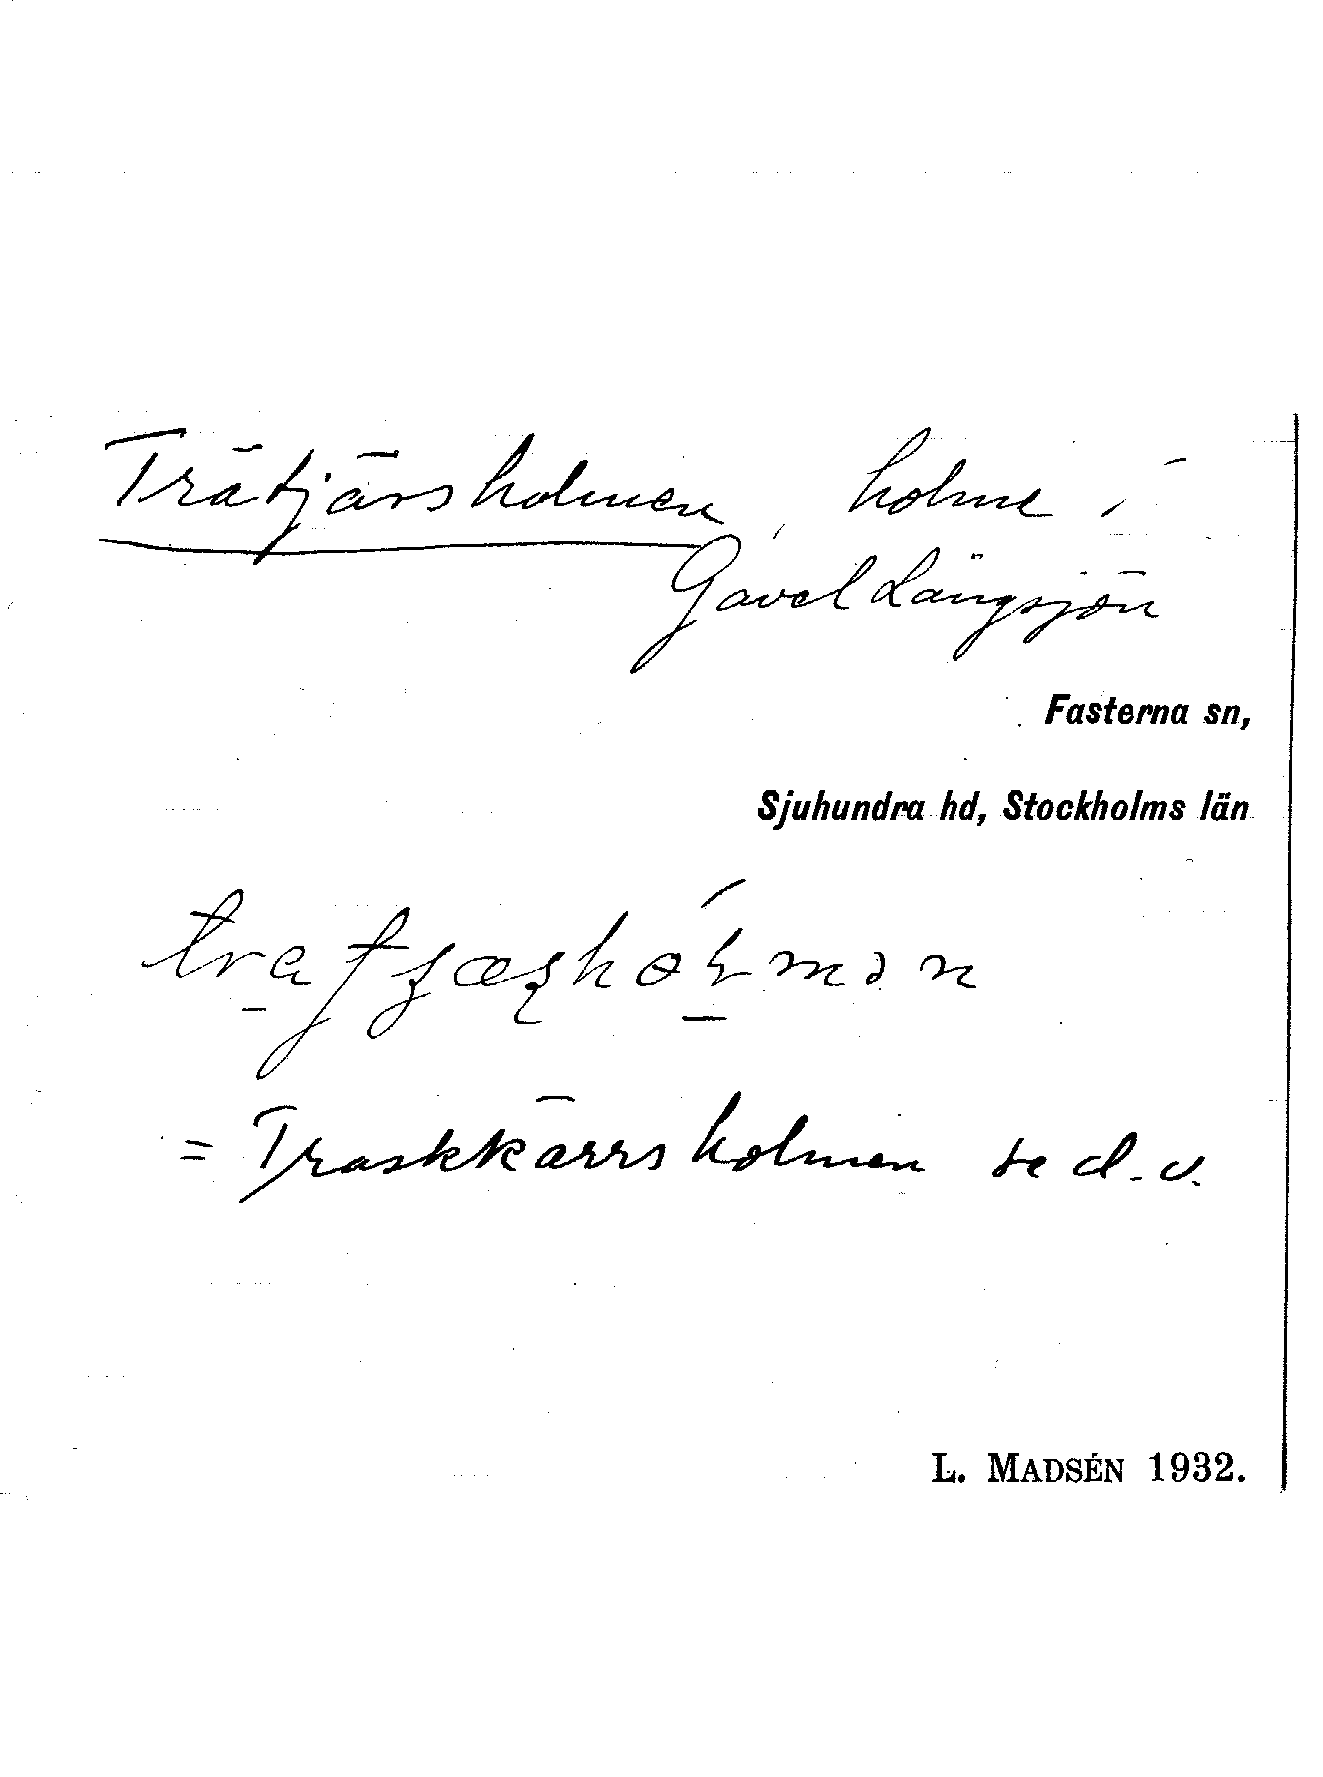 Trätjärsholmen, holme i
Gavel Långsjön
Fasterna sn,
Sjuhundra hd, Stockholms län
= Traskkärrsholmen se d.v.
L. MADSÉN 1932.